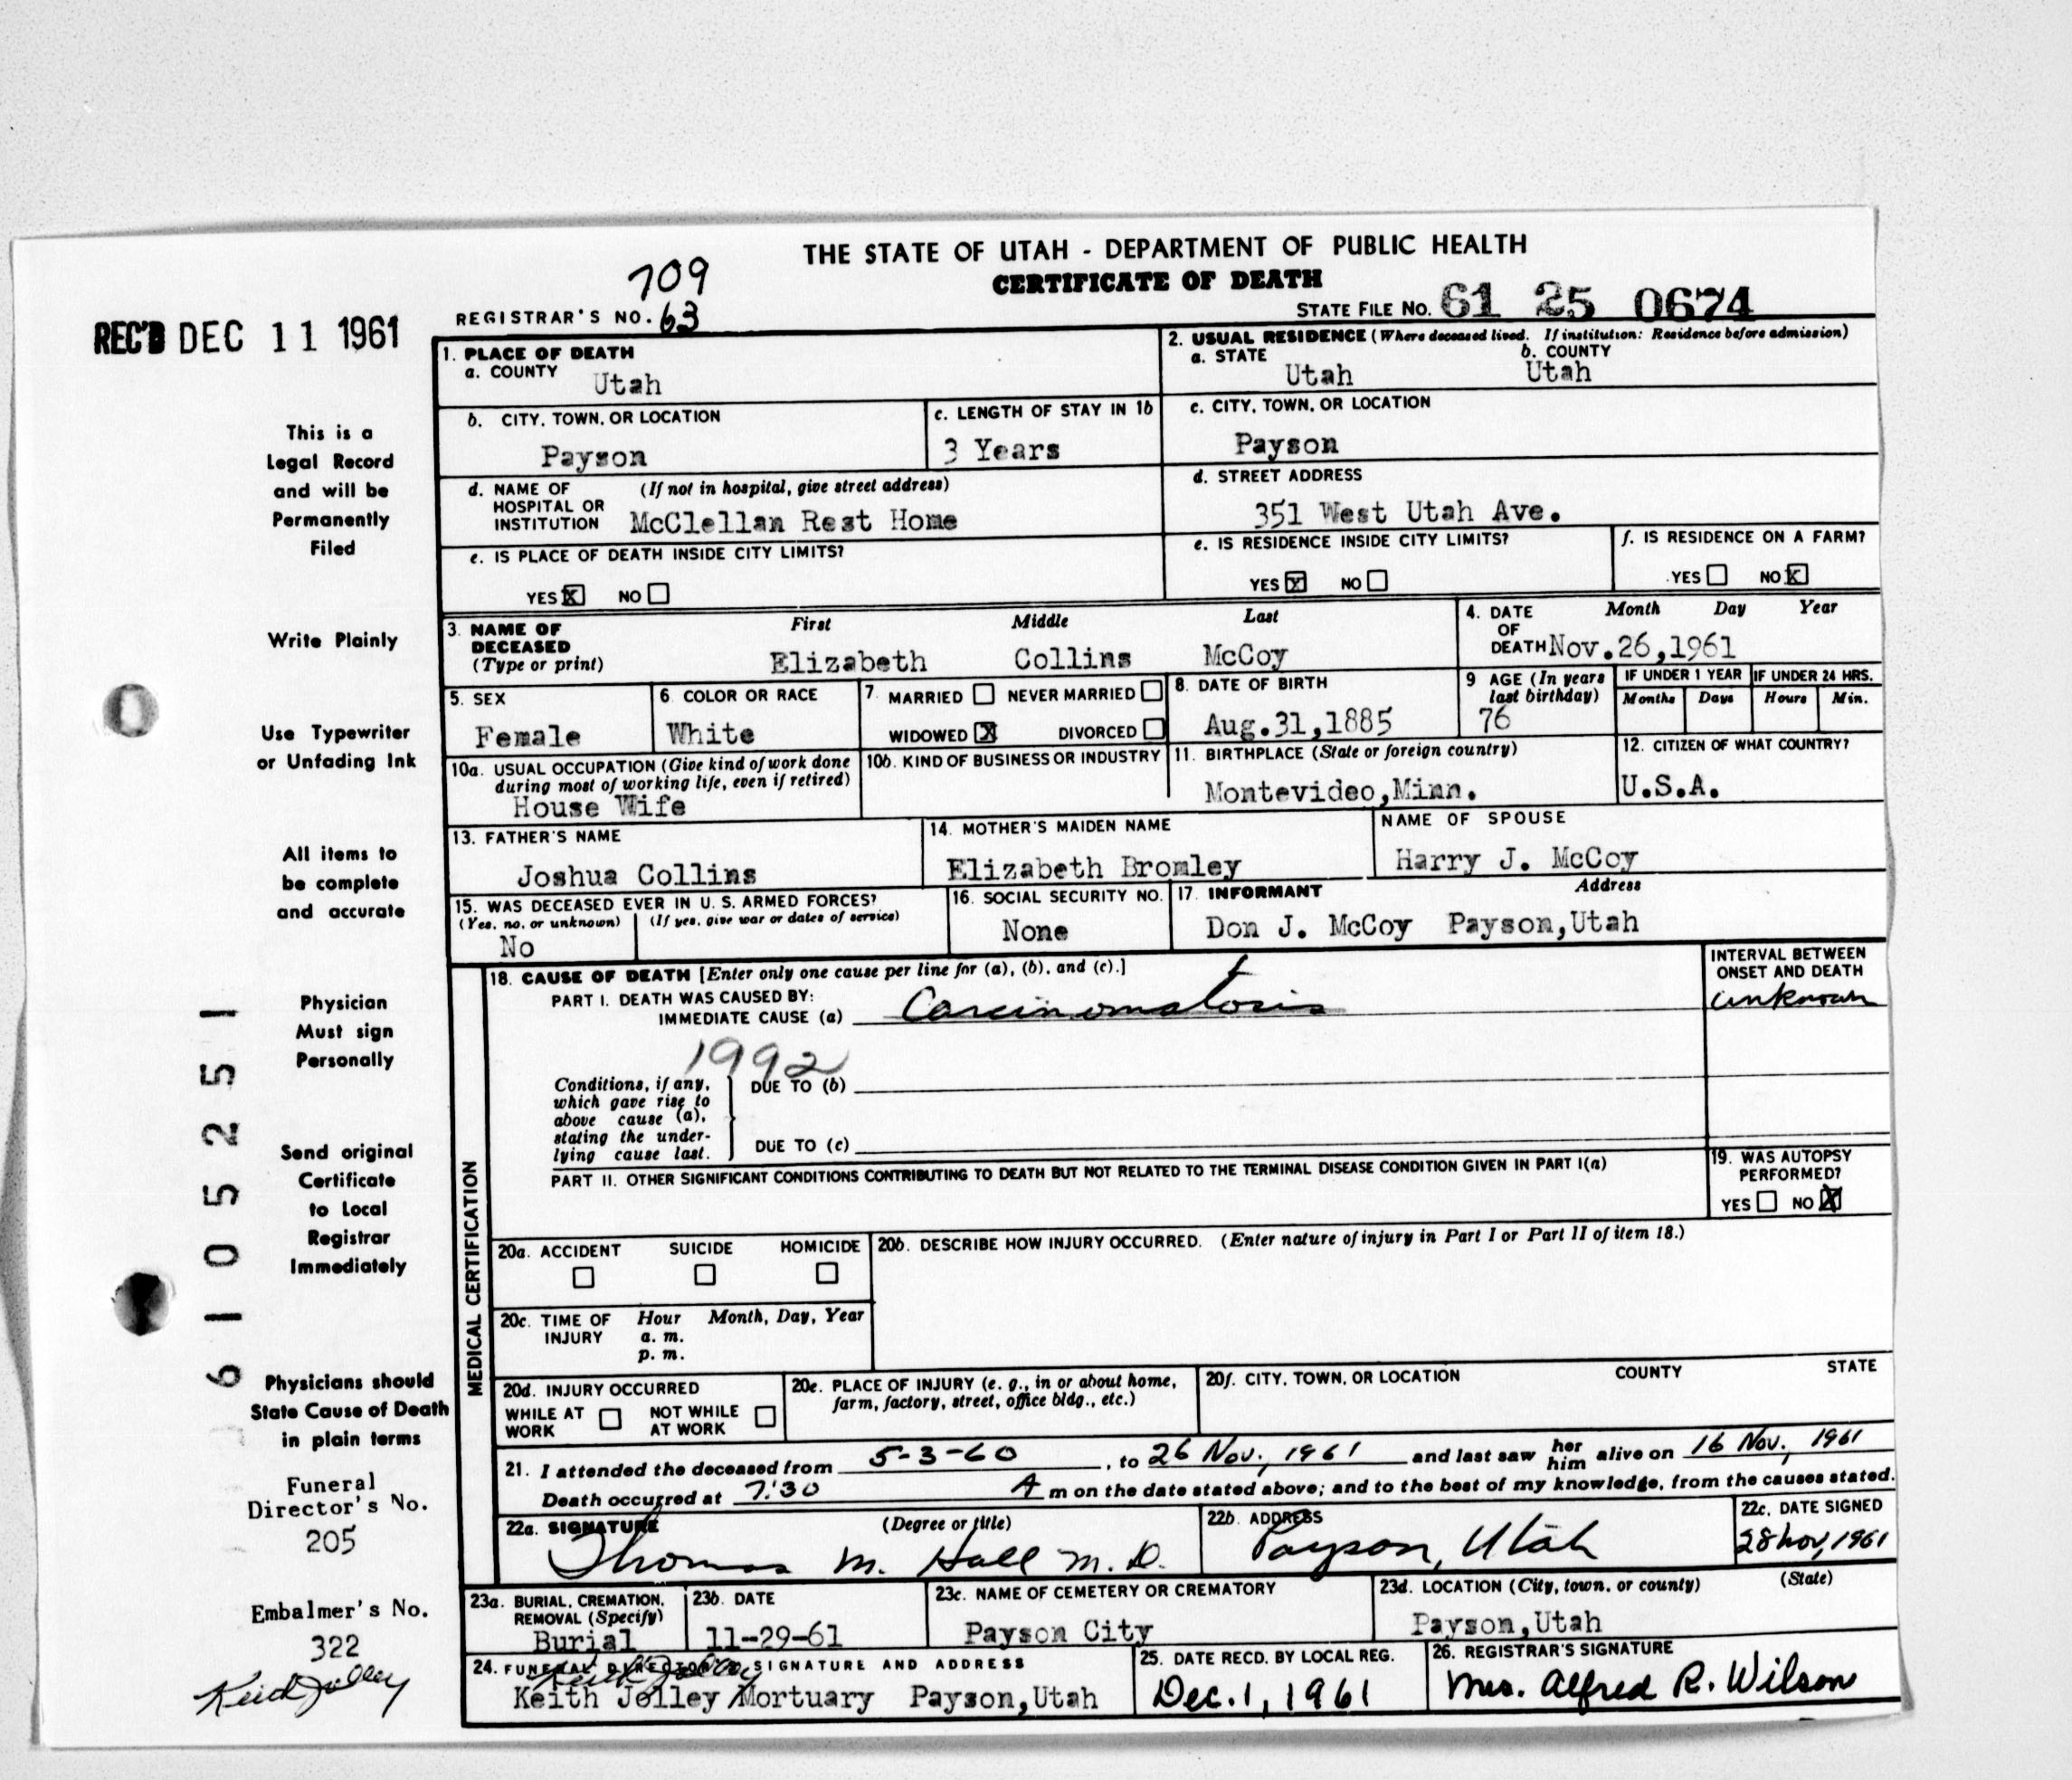 THE STATE OF UTAH - DEPARTMENT OF PUBLIC HEALTH
CERTIFICATE OF DEATH
709
REGISTRAR'S NO. 63
STATE FILE NO. 61 25 0674
REC'D DEC 11 1961
This is a
Legal Record
and will be
Permanently
Filed
Write Plainly
Use Typewriter
or Unfading Ink
All items to
be complete
and accurate
Physician
Must sign
Personally
Send original
Certificate
to Local
Registrar
Immediately
Physicians should
State Cause of Death
in plain terms
Funeral
Director's No.
205
Embalmer's No.
322
Keith Jolley
61052251
1. PLACE OF DEATH
a. COUNTY Utah
2. USUAL RESIDENCE (Where deceased lived. If institution: Residence before admission)
a. STATE Utah b. COUNTY Utah
b. CITY, TOWN, OR LOCATION Payson
c. LENGTH OF STAY IN 1b 3 Years
c. CITY, TOWN, OR LOCATION Payson
d. NAME OF HOSPITAL OR INSTITUTION (If not in hospital, give street address) McClellan Rest Home
d. STREET ADDRESS 351 West Utah Ave.
e. IS PLACE OF DEATH INSIDE CITY LIMITS?
YES X NO
e. IS RESIDENCE INSIDE CITY LIMITS?
YES X NO
f. IS RESIDENCE ON A FARM?
YES NO X
3. NAME OF DECEASED (Type or print)
First Middle Last
Elizabeth Collins McCoy
4. DATE OF DEATH Month Day Year
Nov.26,1961
5. SEX Female
6. COLOR OR RACE White
7. MARRIED NEVER MARRIED
WIDOWED X DIVORCED
8. DATE OF BIRTH Aug.31,1885
9 AGE (In years last birthday) 76
IF UNDER 1 YEAR Months Days
IF UNDER 24 HRS. Hours Min.
10a. USUAL OCCUPATION (Give kind of work done during most of working life, even if retired)
House Wife
10b. KIND OF BUSINESS OR INDUSTRY
11. BIRTHPLACE (State or foreign country)
Montevideo,Minn.
12. CITIZEN OF WHAT COUNTRY?
U.S.A.
13. FATHER'S NAME
Joshua Collins
14. MOTHER'S MAIDEN NAME
Elizabeth Bromley
NAME OF SPOUSE
Harry J. McCoy
15. WAS DECEASED EVER IN U. S. ARMED FORCES?
(Yes, no, or unknown) (If yes, give war or dates of service)
No
16. SOCIAL SECURITY NO.
None
17. INFORMANT Address
Don J. McCoy Payson,Utah
MEDICAL CERTIFICATION
18. CAUSE OF DEATH [Enter only one cause per line for (a), (b), and (c).]
PART I. DEATH WAS CAUSED BY:
IMMEDIATE CAUSE (a) Carcinomatosis
INTERVAL BETWEEN
ONSET AND DEATH
unknown
1992
Conditions, if any,
which gave rise to
above cause (a),
stating the under-
lying cause last.
DUE TO (b)
DUE TO (c)
PART II. OTHER SIGNIFICANT CONDITIONS CONTRIBUTING TO DEATH BUT NOT RELATED TO THE TERMINAL DISEASE CONDITION GIVEN IN PART I(a)
19. WAS AUTOPSY
PERFORMED?
YES NO X
20a. ACCIDENT SUICIDE HOMICIDE
20b. DESCRIBE HOW INJURY OCCURRED. (Enter nature of injury in Part I or Part II of item 18.)
20c. TIME OF INJURY Hour Month, Day, Year
a. m.
p. m.
20d. INJURY OCCURRED
WHILE AT WORK NOT WHILE AT WORK
20e. PLACE OF INJURY (e. g., in or about home, farm, factory, street, office bldg., etc.)
20f. CITY, TOWN, OR LOCATION COUNTY STATE
21. I attended the deceased from 5-3-60, to 26 Nov., 1961 and last saw her him alive on 16 Nov., 1961
Death occurred at 7:30 A m on the date stated above; and to the best of my knowledge, from the causes stated.
22a. SIGNATURE (Degree or title)
Thomas M. Hall M.D.
22b. ADDRESS
Payson, Utah
22c. DATE SIGNED
28 Nov, 1961
23a. BURIAL, CREMATION, REMOVAL (Specify)
Burial
23b. DATE
11-29-61
23c. NAME OF CEMETERY OR CREMATORY
Payson City
23d. LOCATION (City, town, or county) (State)
Payson,Utah
24. FUNERAL DIRECTOR'S SIGNATURE AND ADDRESS
Keith Jolley
Keith Jolley Mortuary Payson,Utah
25. DATE RECD. BY LOCAL REG.
Dec. 1, 1961
26. REGISTRAR'S SIGNATURE
Mrs. Alfred R. Wilson